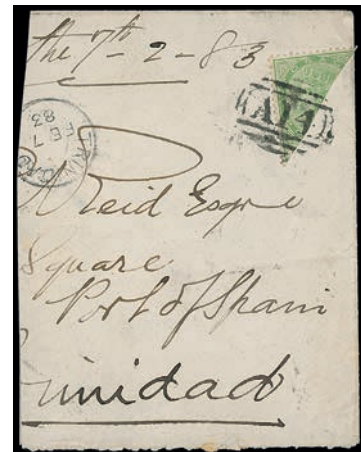 the 7th - 2 - 83
A14
FE 7
83
Reid Esqre
Square
Port of Spain
Trinidad